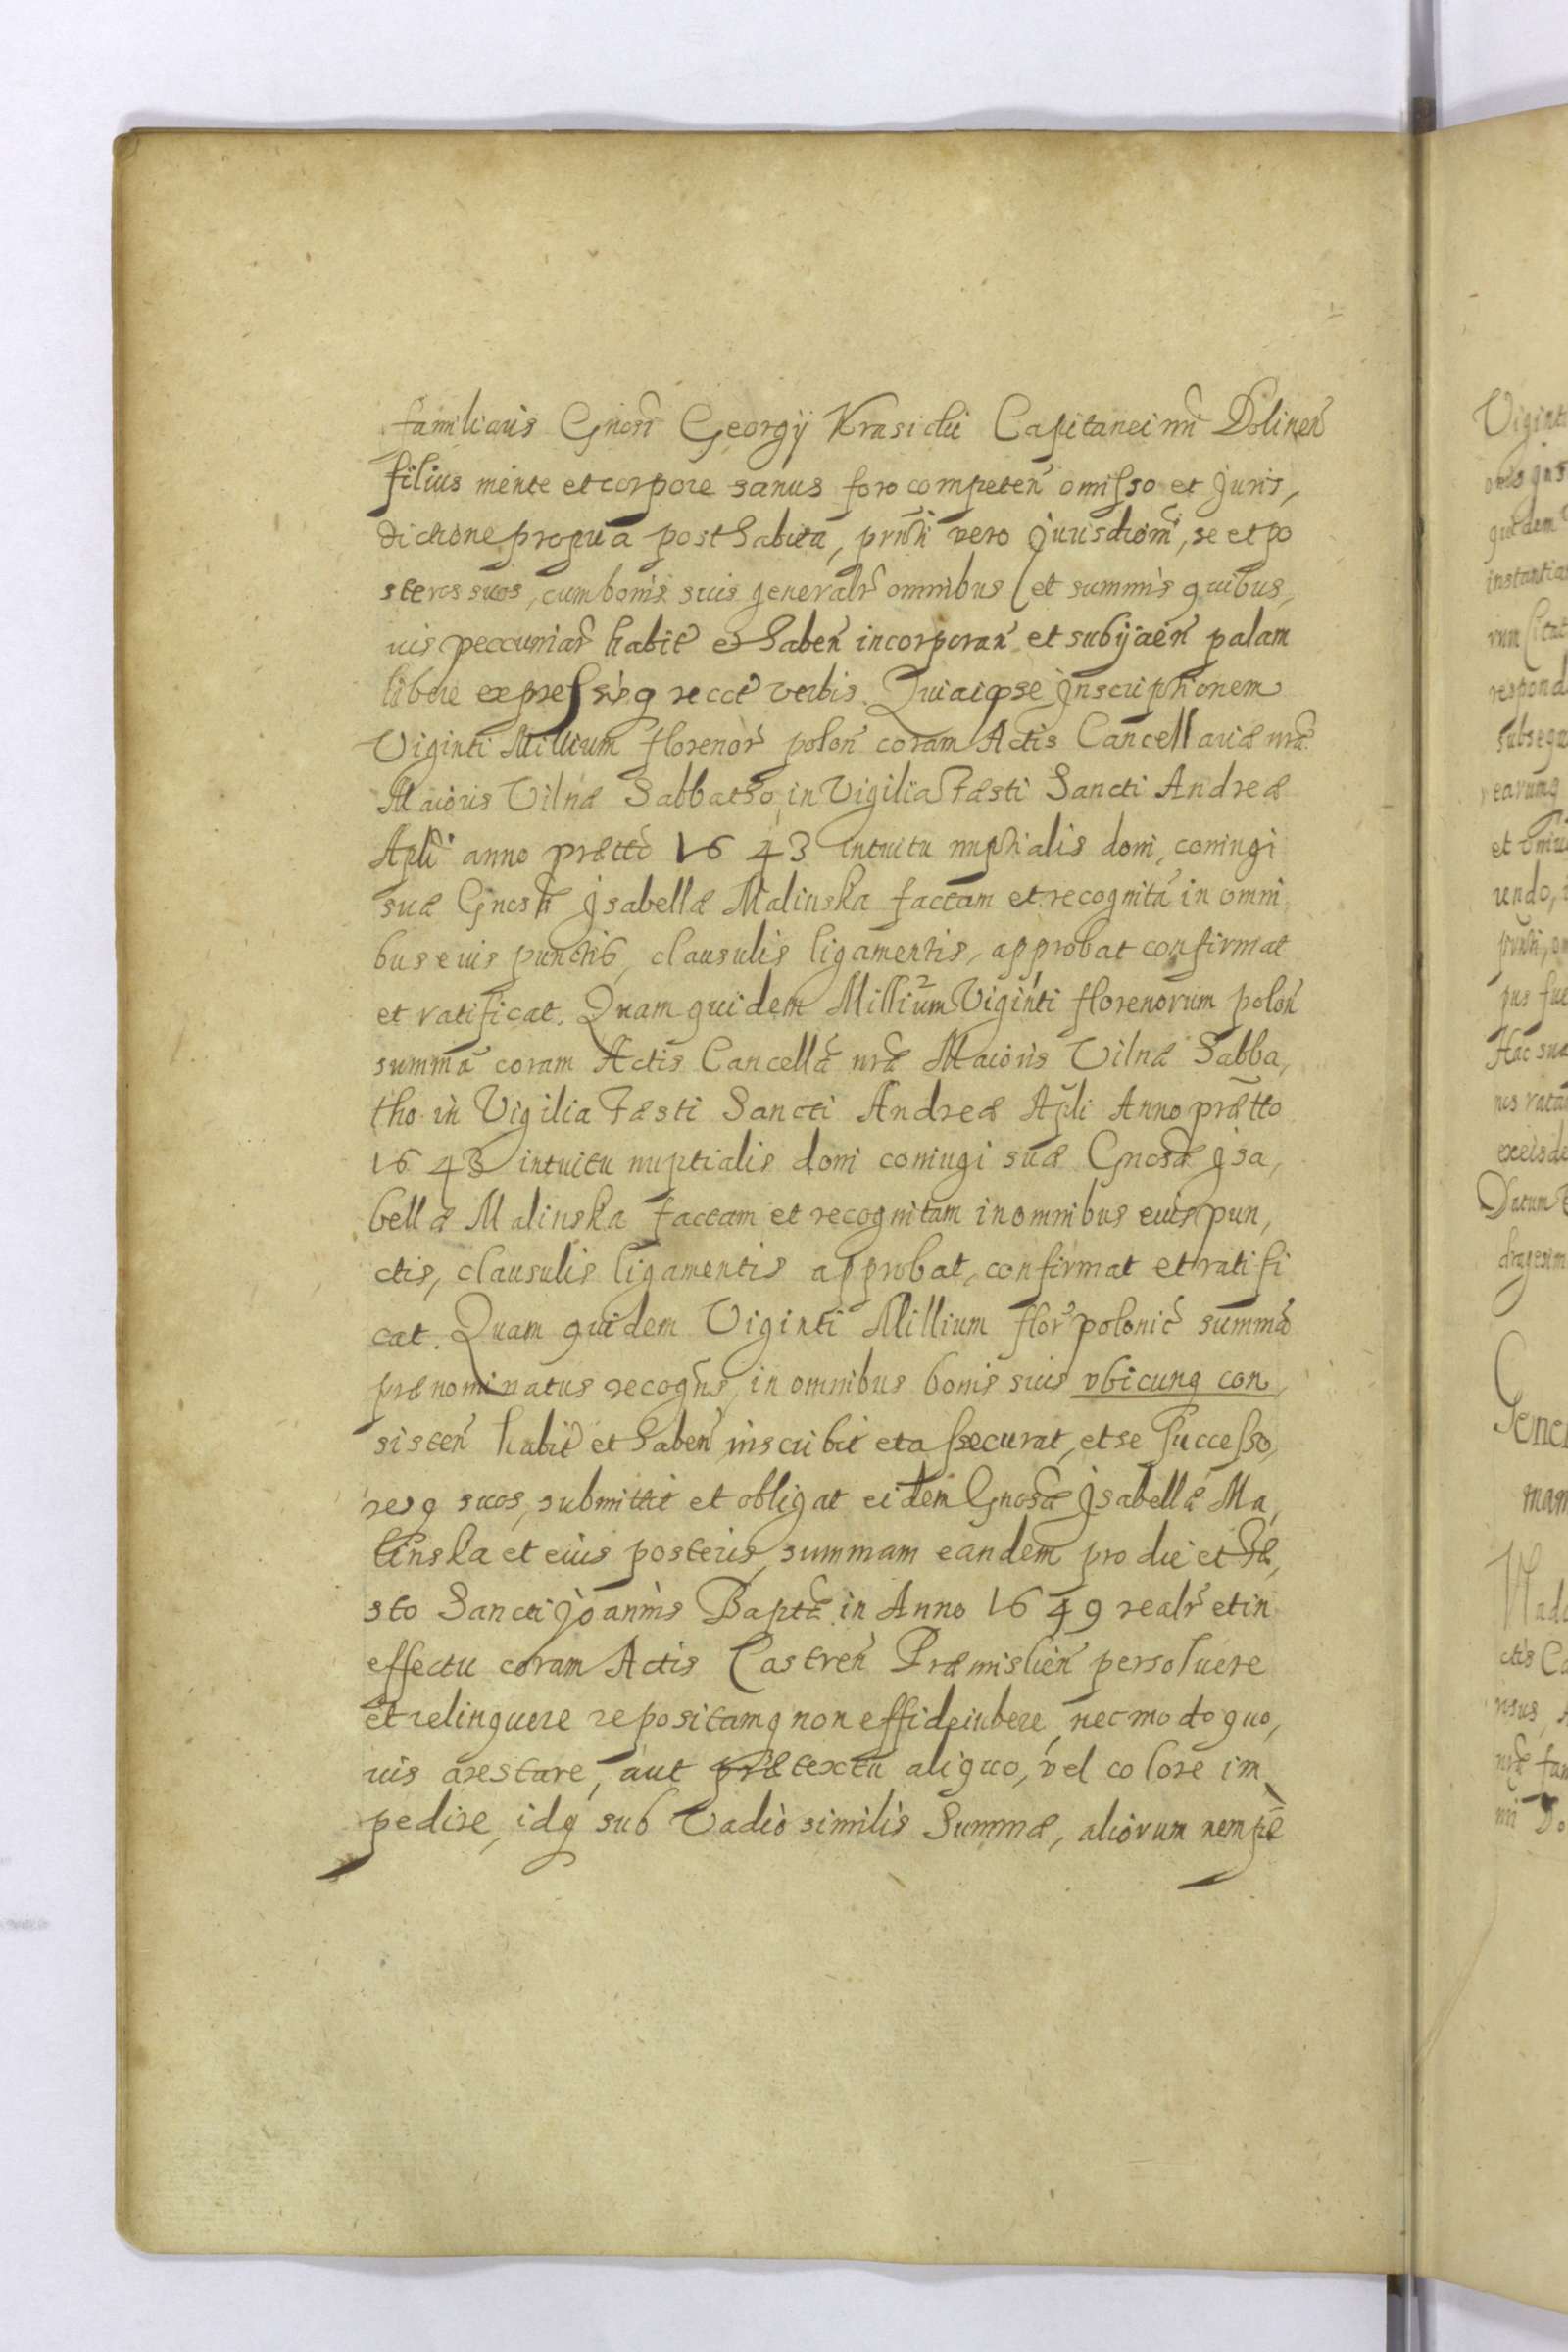 familiaris Gnosi Georgij Krasicki Capitanei nri Dolinen
filius mente et corpore sanus foro competen omisso et Juris,
dictione propria posthabita, prnti vero Jurisdioni, se et po
steros suos, cum bonis suis generalr omnibus (et summis quibus,
uis pecuniar habit et haben incorporan et subijcien palam
libere expressisq recoct verbis. Quia ipse Inscriptionem
Viginti Millium florenor polon coram Actis Cancellariæ nræ
Maioris Vilnæ Sabbatho in Vigilia Fæsti Sancti Andreæ
Apli anno prætto 1643 intuitu nuptialis doni, coniugi
suæ Gnosæ Jsabellæ Malinska factam et recognita in omni
bus eius punctis, clausulis ligamentis, approbat confirmat
et ratificat. Quam quidem Millium Viginti florenorum polon
summa coram Actis Cancellæ nræ Maioris Vilnæ Sabba,
tho in Vigilia Fæsti Sancti Andreæ Apli Anno prætto
1643 intuitu nuptialis doni coniugi suæ Gnosæ Jsa,
bellæ Malinska factam et recognitam in omnibus eius pun,
ctis, clausulis ligamentis approbat, confirmat et ratifi
cat. Quam quidem Viginti Millium flor polonic summa
prænominatus recogns, in omnibus bonis suis vbicunq con,
sisten habit et haben inscribit et assecurat, et se Successo,
resq suos, submittit et obligat eidem Gnosæ Jsabellæ Ma,
linska et eius posteris, summam eandem pro die et Fæ,
sto Sancti Joannis Baptæ in Anno 1649 realr et in
effectu coram Actis Castren Præmislien persoluere
et relinquere repositamq non effideiubere, nec modo quo,
uis arestare, aut prætextu aliquo, vel colore im
pedire, idq sub Vadio similis Summæ, aliorum nempe